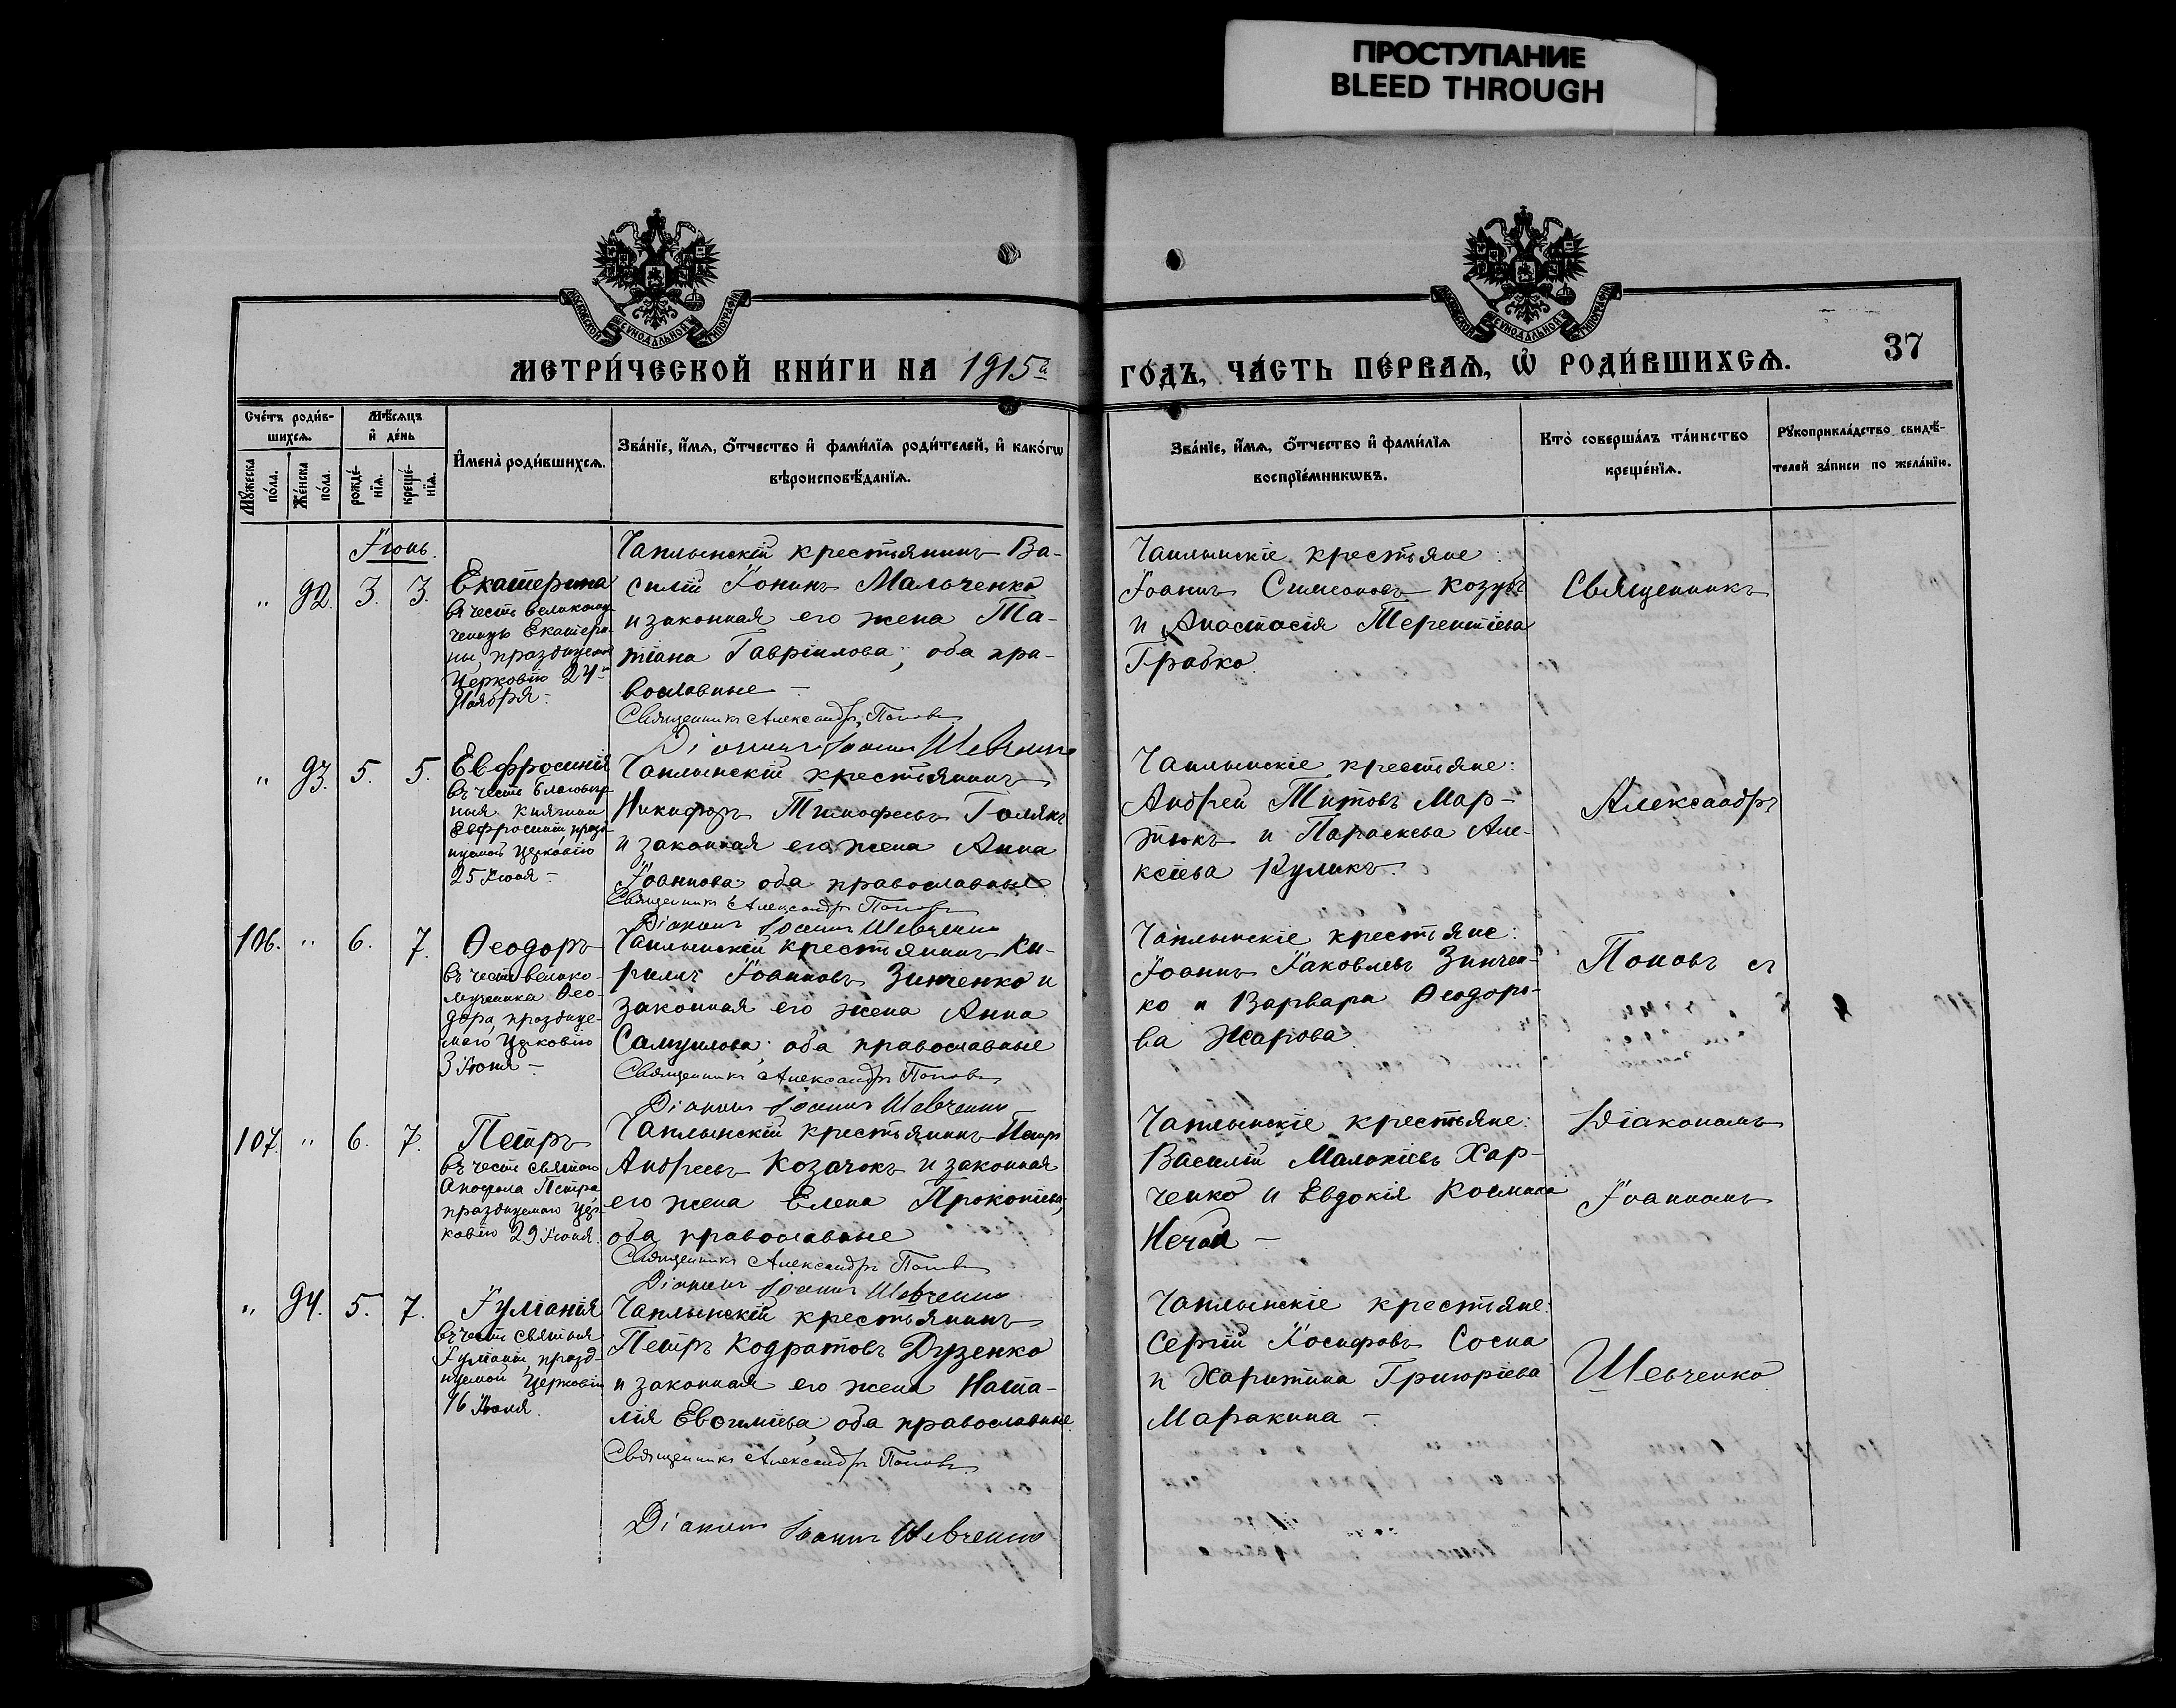 ПРОСТУПАНИЕ
BLEED THROUGH
МЕТРИ́ЧЕСКОЙ КНИ́ГИ НА 1915й
ГО́ДЪ, ЧА́СТЬ ПЕ́РВАѦ, Ѡ҆ РОДИ́ВШИХСѦ.
37
Сче́тъ роди́в-
шихсѧ.
Мѣ́сѧцъ
и҆ де́нь
Мꙋ́жеска
по́ла.
Же́нска
по́ла.
рожде́-
нїѧ.
креще́-
нїѧ.
И҆мена̀ роди́вшихсѧ.
Зва́нїе, и҆́мѧ, ѻ҆́тчество и҆ фами́лїѧ роди́телей, и҆ како́гѡ
вѣроисповѣ́данїѧ.
Зва́нїе, и҆́мѧ, ѻ҆́тчество и҆ фами́лїѧ
воспрїе́мникѡвъ.
Кто̀ соверша́лъ та́инство
креще́нїѧ.
Рꙋкоприкла́дство свидѣ́-
телей за́писи по жела́нїю.
Іюнь.
" 92. 3. 3.
Екатерина
въ честь великому-
ченицы Екатери-
ны, празднуемой
Церковію 24го
Ноября –
Чаплынскій крестьянинъ Ва-
силій Іонинъ Мальченко
и законная его жена Та-
тіана Гавріилова, оба пра-
вославные –
Священникъ Александръ Поповъ
Діаконъ Іоаннъ Шевченко
Чаплынскіе крестьяне:
Іоаннъ Симеоновъ Козубъ
и Анастасія Терентіева
Грабко
Священникъ
" 93. 5. 5.
Евфросинія
въ честь Благовѣр-
ныя Княжны
Евфросиніи празд-
нуемой Церковію
25 Іюня –
Чаплынскій крестьянинъ
Никифоръ Тимофеевъ Голякъ
и законная его жена Анна
Іоаннова оба православные
Священникъ Александръ Поповъ
Діаконъ Іоаннъ Шевченко
Чаплынскіе крестьяне:
Андрей Титовъ Мар-
тюкъ и Параскева Але-
ксіева Куликъ
Александръ
106. " 6. 7.
Ѳеодоръ
въ честь велико-
мученика Ѳео-
дора, праздуе-
маго Церковію
3 Іюня –
Чаплынскій крестьянинъ Ки-
риллъ Іоанновъ Зинченко и
законная его жена Анна
Самуилова; оба православные
Священникъ Александръ Поповъ
Діаконъ Іоаннъ Шевченко
Чаплынскіе крестьяне:
Іоаннъ Іаковлевъ Зинчен-
ко и Варвара Ѳеодоро-
ва Жарова
Поповъ съ
107. " 6. 7.
Петръ
въ честь святаго
Апостола Петра
празднуемаго Цер-
ковію 29 Іюня.
Чаплынскій крестьянинъ Петръ
Андреевъ Козачокъ и законная
его жена Елена Прокопіева,
оба православные
Священникъ Александръ Поповъ
Діаконъ Іоаннъ Шевченко
Чаплынскіе крестьяне:
Василій Малахіевъ Хар-
ченко и Евдокія Космина
Нечай –
Діакономъ
Іоанномъ
" 94. 5. 7.
Іуліанія
въ честь святыя
Іуліаніи, празд-
нуемой Церковію
16 Іюня.
Чаплынскій крестьянинъ
Петръ Кодратовъ Дузенко
и законная его жена Ната-
лія Евѳиміева, оба православные
Священникъ Александръ Поповъ
Діаконъ Іоаннъ Шевченко
Чаплынскіе крестьяне:
Сергій Іосифовъ Сосна
и Харитина Григоріева
Маракина –
Шевченко